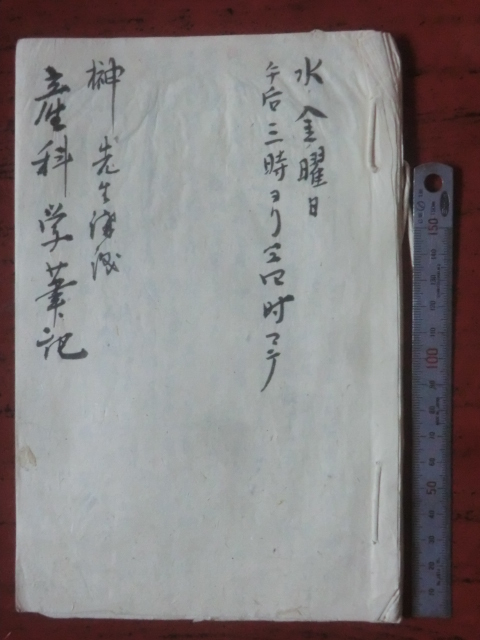 水、金曜日
午后三時ヨリ四時マデ
榊先生講義
産科学筆記
150
100
50